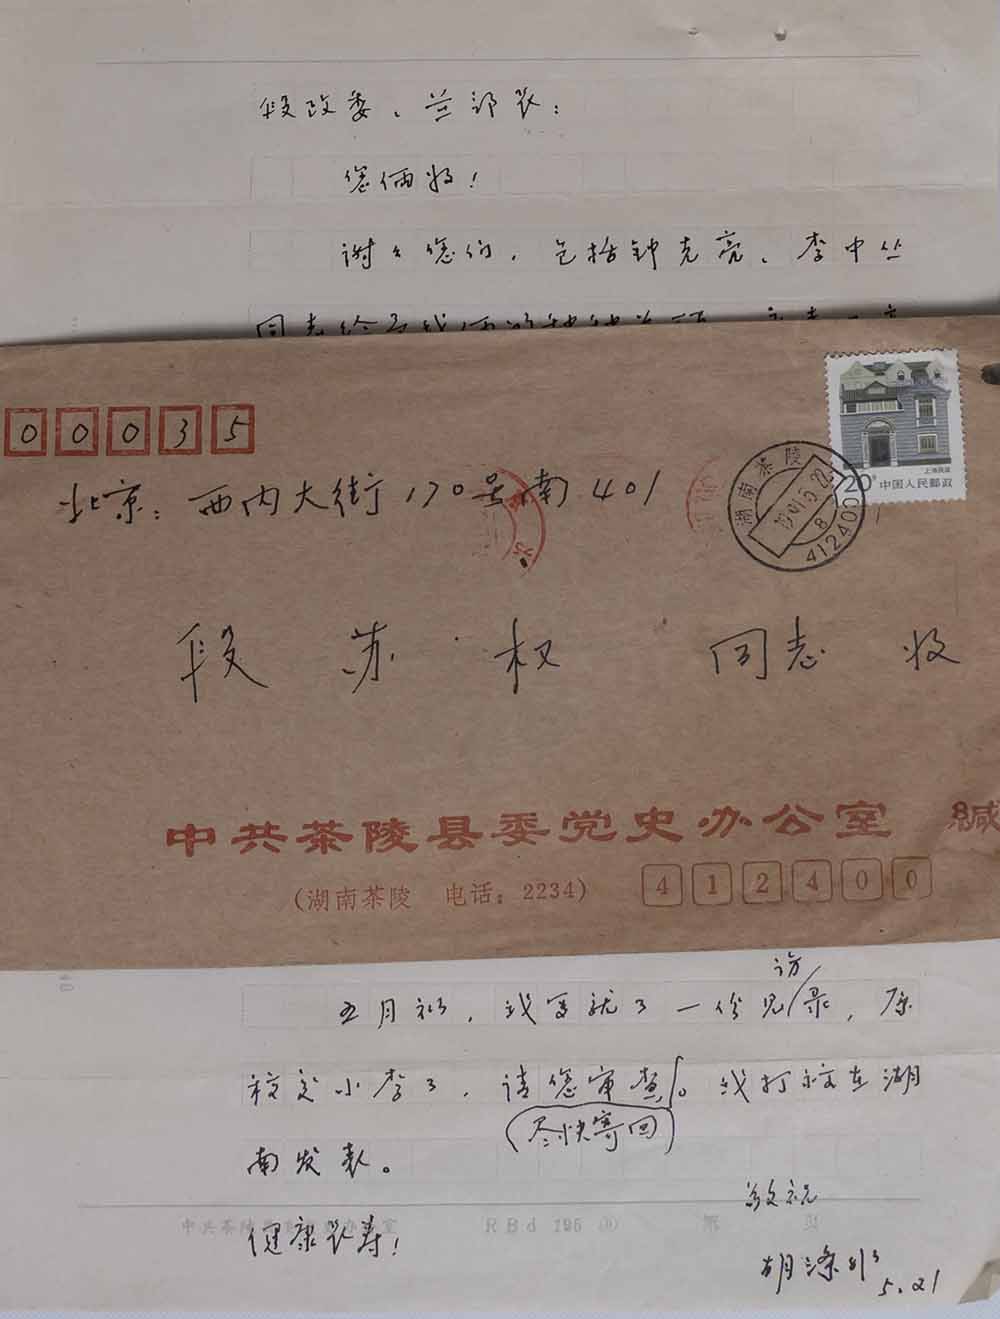 段政委、兰部长：
您俩好！
谢々您们，包括钟克亮、李中丛
同志给
00035
北京：西内大街170号南401
上海民居
20分 中国人民邮政
湖南茶陵
1991.5.22
8
412400
段苏权 同志 收
中共茶陵县委党史办公室 缄
（湖南茶陵 电话：2234）
412400
访
五月初，我写就了一份见录，原
稿交小李了，请您审查。我打算在湖
尽快寄回
南发表。
敬祝
中共茶陵县委党史办公室 RBd 195 第 页
健康长寿！
胡涤
5.21